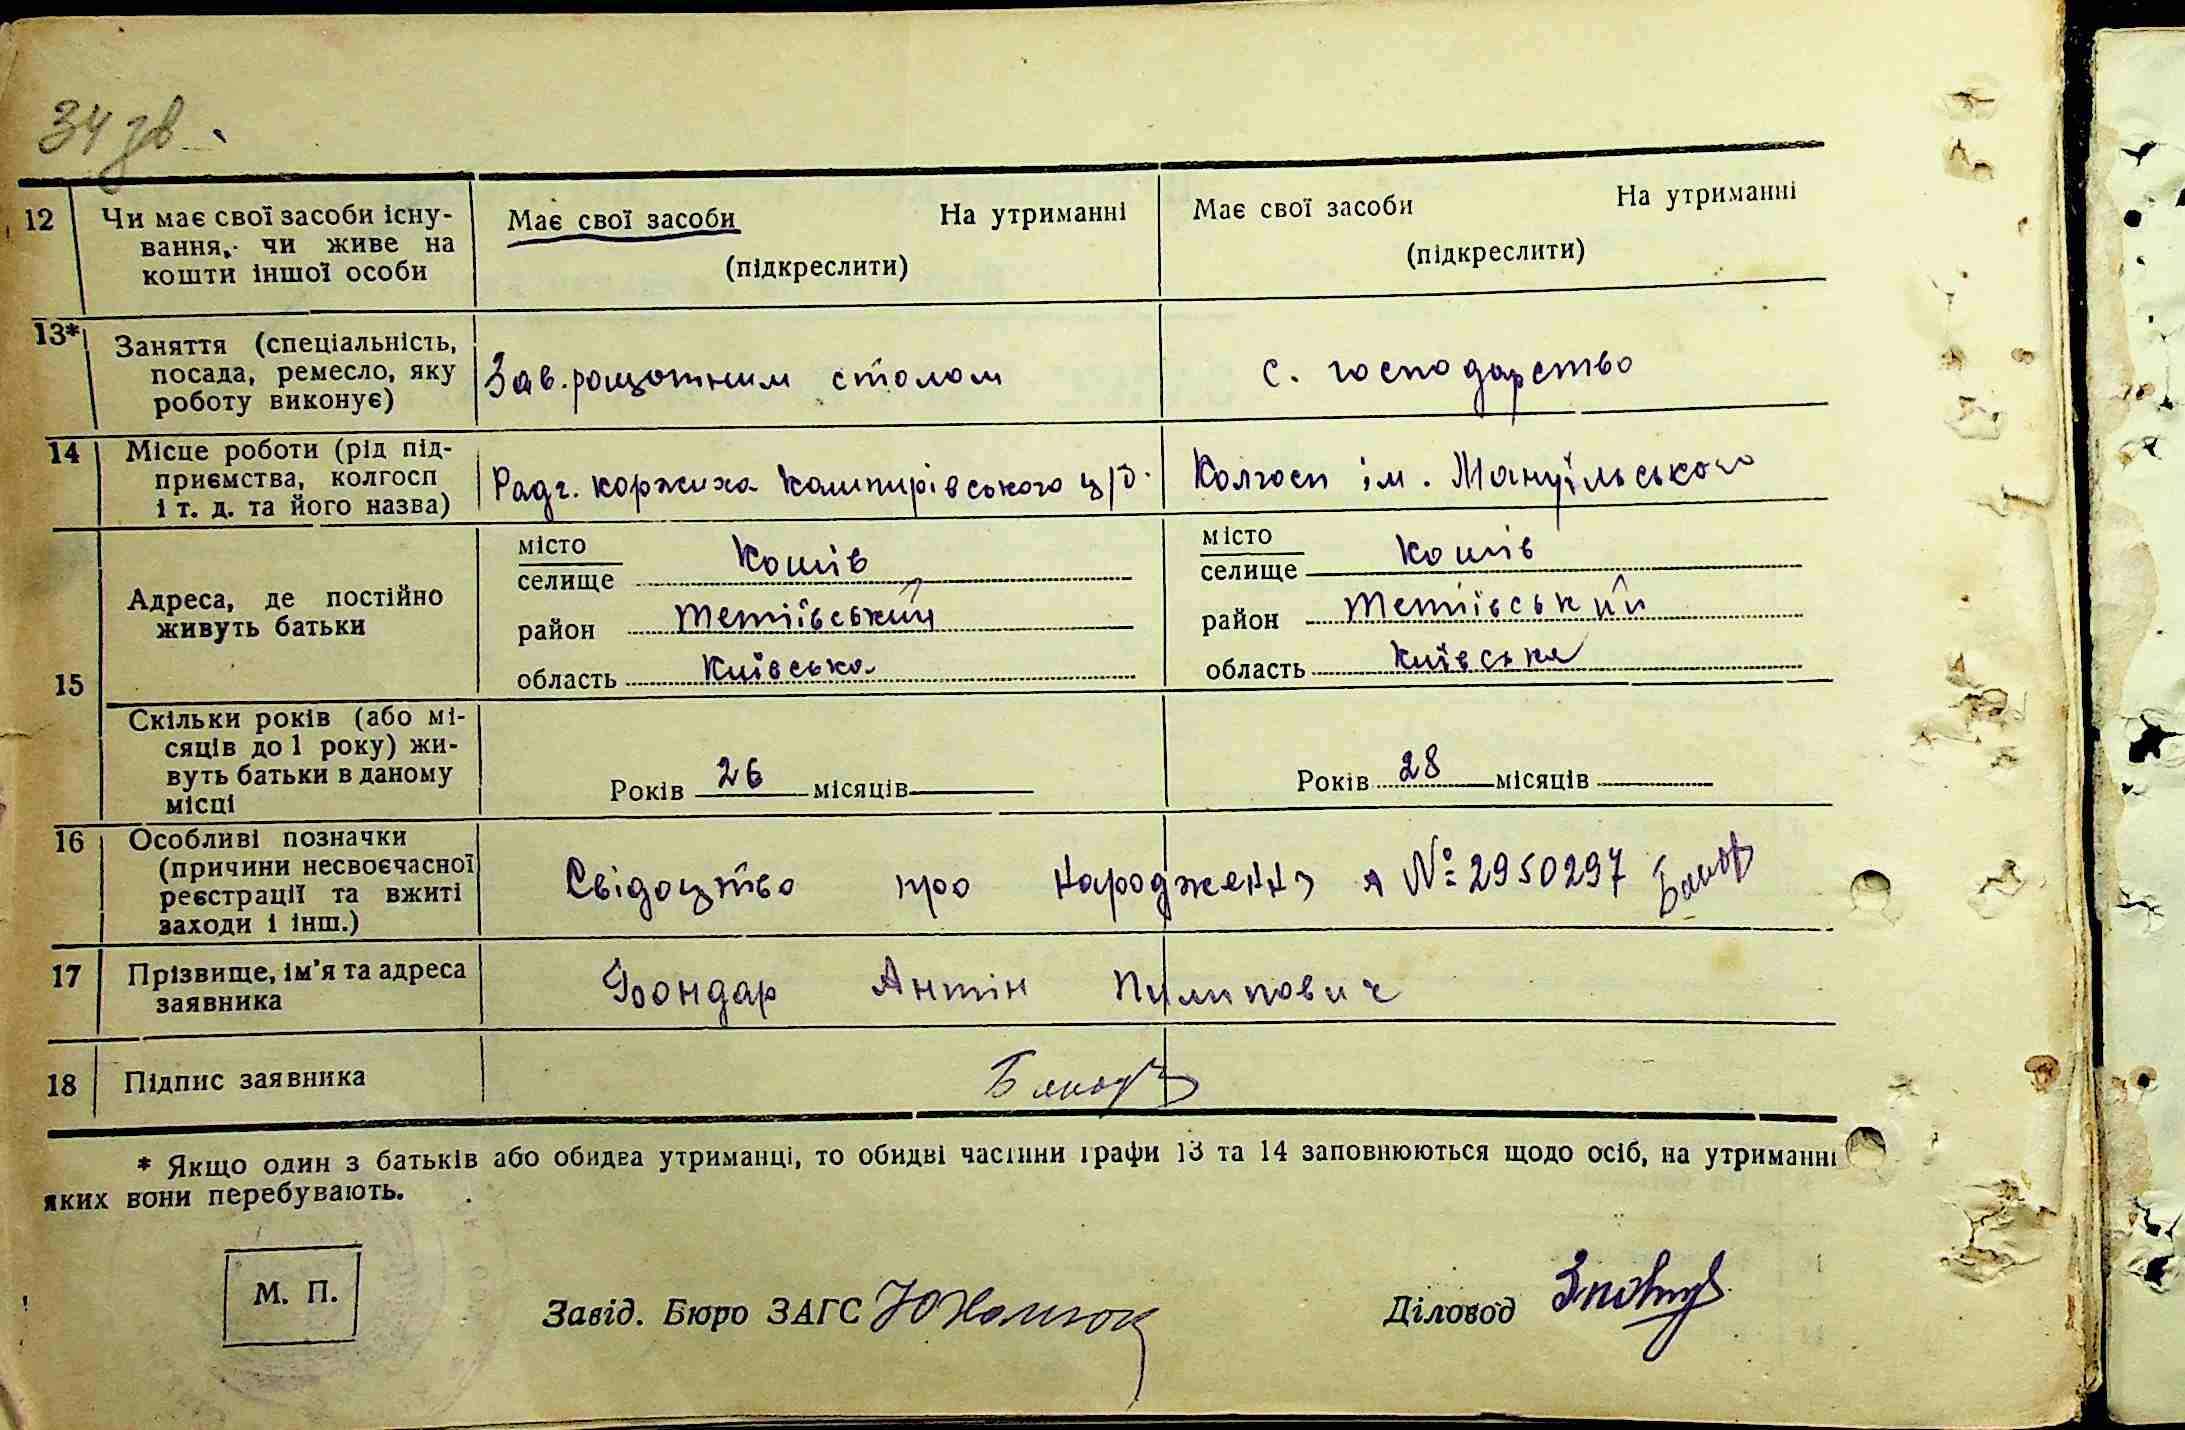 34 зв.
12 Чи має свої засоби існу-
вання, чи живе на
кошти іншої особи
Має свої засоби На утриманні
(підкреслити)
Має свої засоби На утриманні
(підкреслити)
13* Заняття (спеціальність,
посада, ремесло, яку
роботу виконує)
Зав. рощотним столом
с. господарство
14 Місце роботи (рід під-
приємства, колгосп
і т. д. та його назва)
Радг. коржиха Кашпирівського ц/з.
Колгосп ім. Мануїльського
15 Адреса, де постійно
живуть батьки
місто
селище Кошів
район Тетіївський
область Київська
місто
селище Кошів
район Тетіївський
область Київська
Скільки років (або мі-
сяців до 1 року) жи-
вуть батьки в даному
місці
Років 26 місяців
Років 28 місяців
16 Особливі позначки
(причини несвоєчасної
реєстрації та вжиті
заходи і інш.)
Свідоцтво про народження №2950297
17 Прізвище, ім'я та адреса
заявника
Бондар Антін Пилипович
18 Підпис заявника
* Якщо один з батьків або обидва утриманці, то обидві частини графи 13 та 14 заповнюються щодо осіб, на утриманні
яких вони перебувають.
М. П.
Завід. Бюро ЗАГС
Діловод